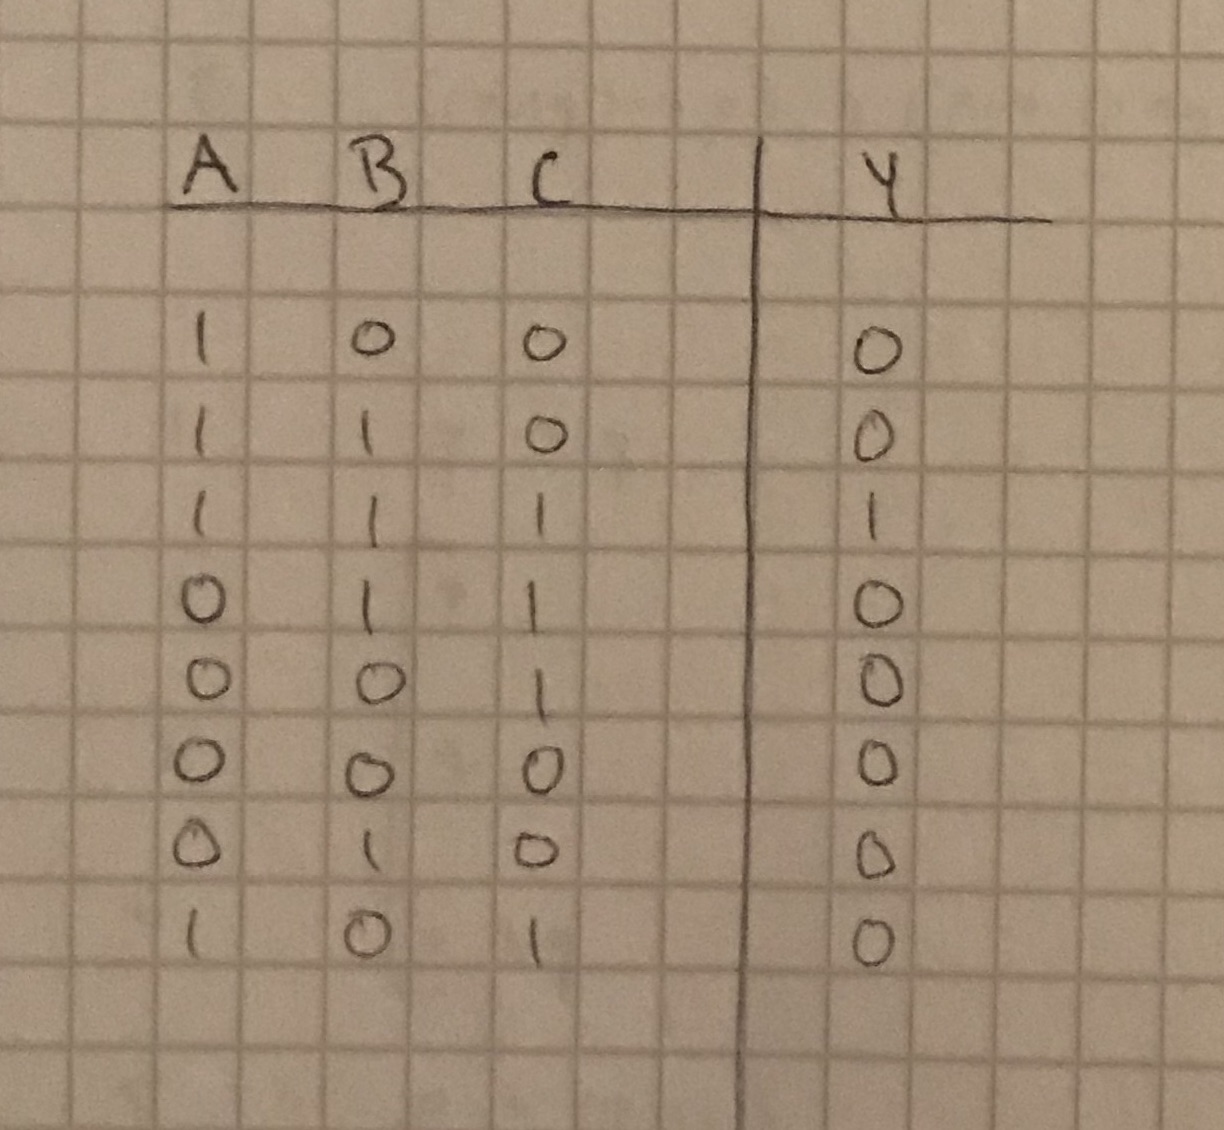 A B C Y
1 0 0 0
1 1 0 0
1 1 1 1
0 1 1 0
0 0 1 0
0 0 0 0
0 1 0 0
1 0 1 0